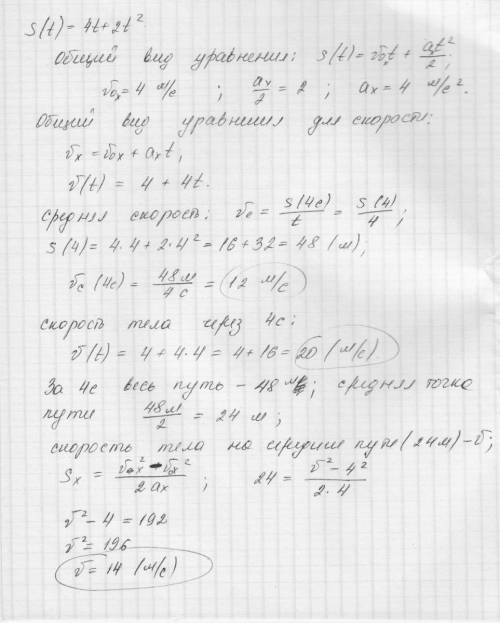 S(t) = 4t + 2t².
Общий вид уравнения: S(t) = v₀ₓt + aₓt²/2;
v₀ₓ = 4 м/с ; aₓ/2 = 2 ; aₓ = 4 м/с².
Общий вид уравнения для скорости:
vₓ = v₀ₓ + aₓt,
v(t) = 4 + 4t.
Средняя скорость: v_c = S(4с)/t = S(4)/4;
S(4) = 4·4 + 2·4² = 16 + 32 = 48 (м);
v_c(4с) = 48м/4с = 12 м/с
скорость тела через 4с:
v(t) = 4 + 4·4 = 4 + 16 = 20 (м/с)
За 4с весь путь – 48 м; средняя точка
пути 48м/2 = 24 м;
скорость тела на середине пути (24м) – v;
Sₓ = (vₓ² - v₀ₓ²)/2aₓ ; 24 = (v² - 4²)/2·4
v² - 4 = 192
v² = 196
v = 14 (м/с)